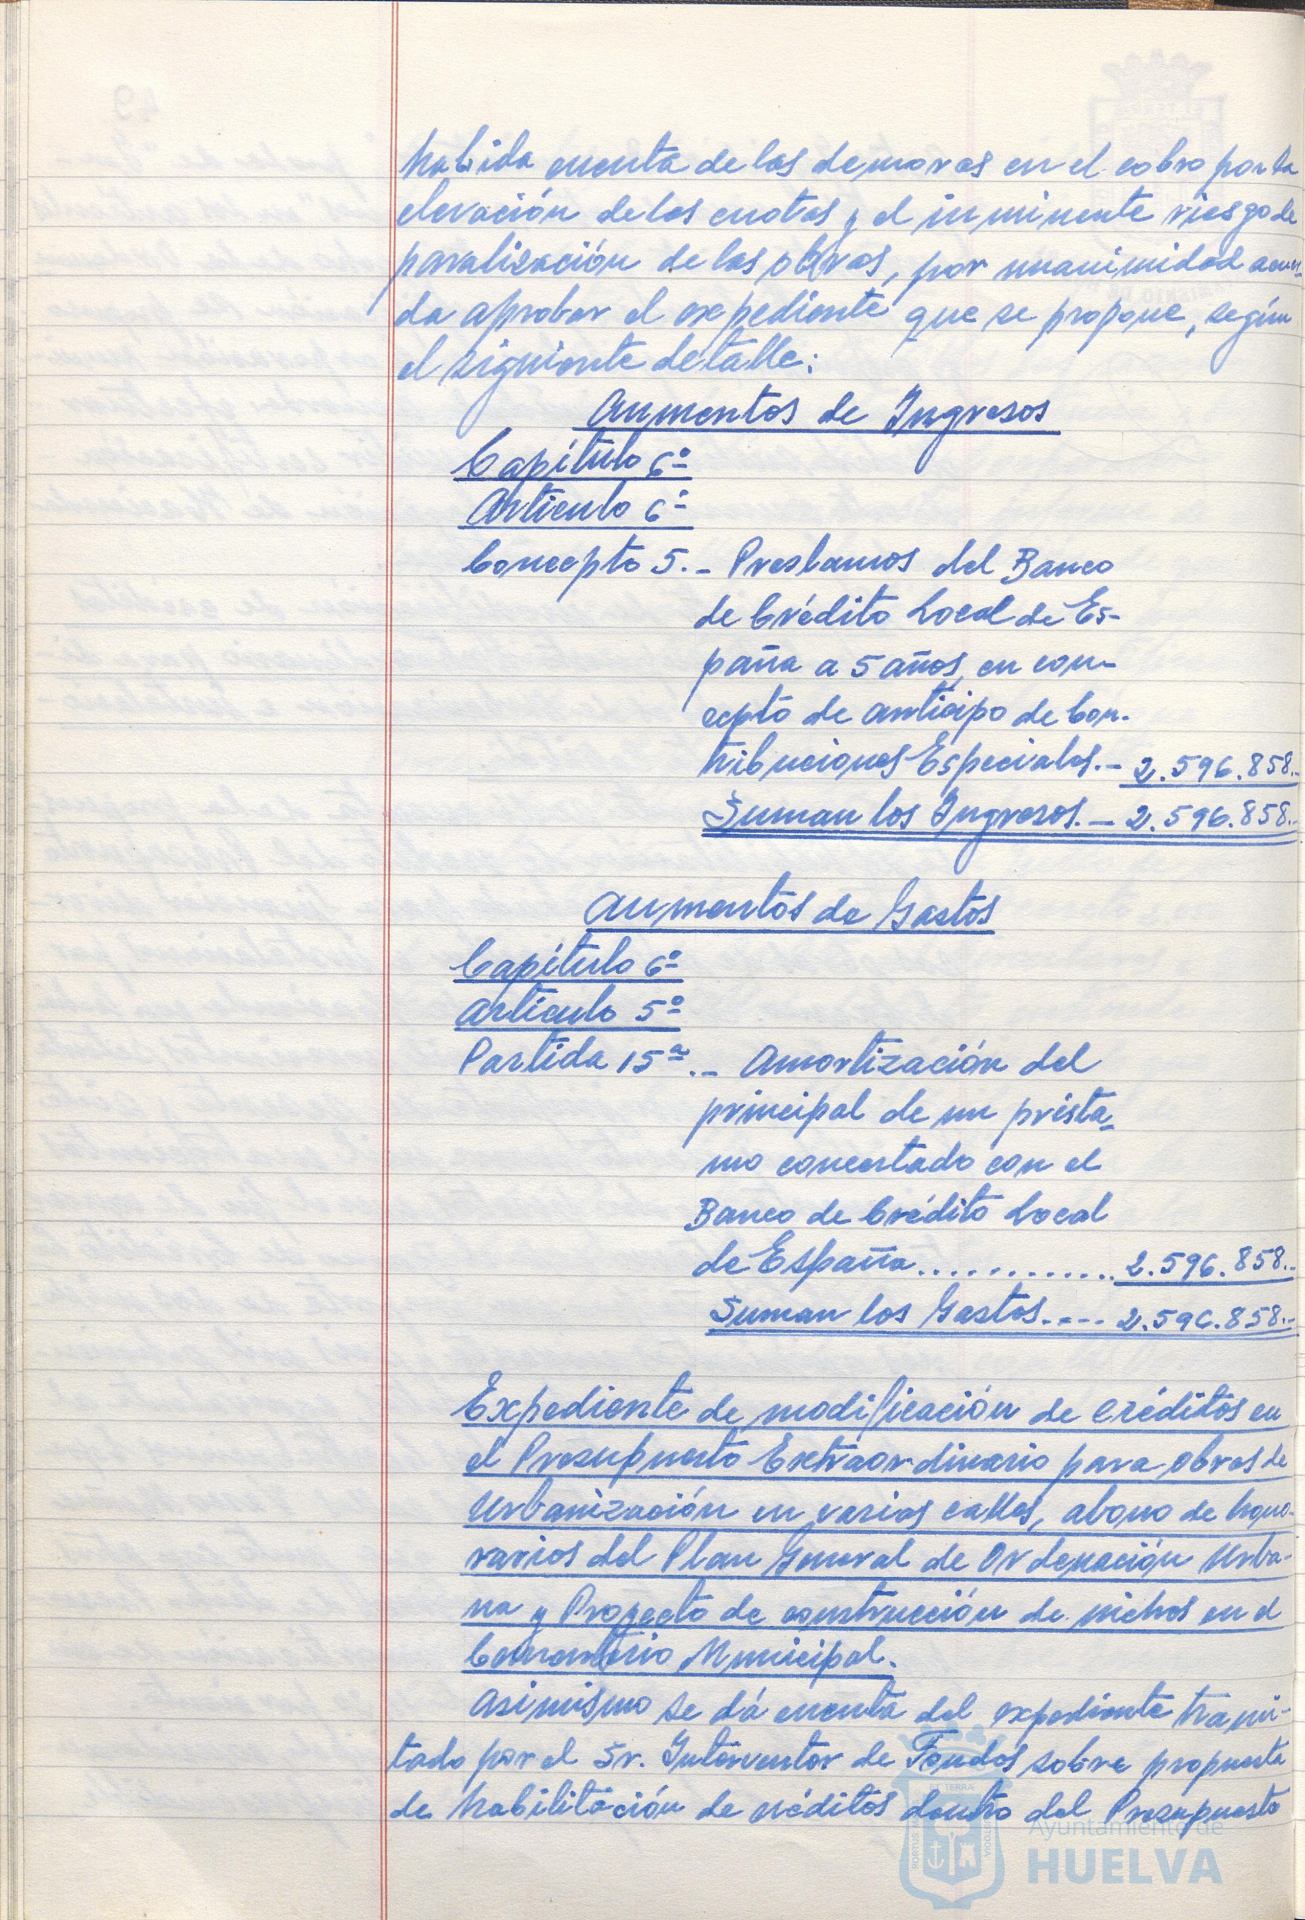 habida cuenta de las demoras en el cobro por la
elevación de las cuotas y el inminente riesgo de
paralización de las obras, por unanimidad acuer-
da aprobar el expediente que se propone, según
el siguiente detalle:
Aumentos de Ingresos
Capítulo 6º
Artículo 6º
Concepto 5.- Prestamos del Banco
de Crédito Local de Es-
paña a 5 años, en con-
cepto de anticipo de Con-
tribuciones Especiales.- 2.596.858.-
Suman los Ingresos.- 2.596.858.-
Aumentos de Gastos
Capítulo 6º
Artículo 5º
Partida 15ª.- Amortización del
principal de un présta-
mo concertado con el
Banco de Crédito Local
de España............. 2.596.858.-
Suman los Gastos.--- 2.596.858.-
Expediente de modificación de créditos en
el Presupuesto Extraordinario para obras de
Urbanización en varias calles, abono de hono-
rarios del Plan General de Ordenación Urba-
na y Proyecto de construcción de nichos en el
Cementerio Municipal.
Asimismo se dá cuenta del expediente trami-
tado por el Sr. Interventor de Fondos sobre propuesta
de habilitación de créditos dentro del Presupuesto
Ayuntamiento de
HUELVA